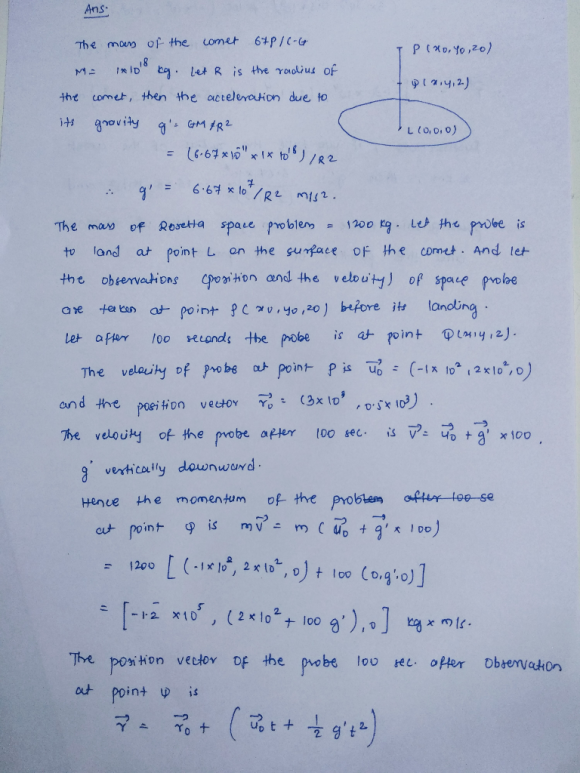 Ans.
The mass of the comet 67P/C-G
M = 1×10¹⁸ kg. Let R is the radius of
the comet, then the acceleration due to
its gravity g' = GM/R2
= (6.67×10⁻¹¹ × 1× 10¹⁸) /R2
∴ g' = 6.67 × 10⁷/R2 m/s2.
P (x0, y0, z0)
Q (x, y, z)
L (0,0,0)
The mass of Rosetta space problem = 1200 kg. Let the probe is
to land at point L on the surface of the comet. And let
the observations (position and the velocity) of space probe
are taken at point P (x0, y0, z0) before its landing.
Let after 100 seconds the probe is at point Q(x,y,z).
The velocity of probe at point P is u⃗₀ = (-1× 10², 2×10², 0)
and the position vector r⃗₀ = (3×10³, 0.5×10³).
The velocity of the probe after 100 sec. is v⃗ = u⃗₀ + g⃗' ×100,
g' vertically downward.
Hence the momentum of the problem after 100 se
at point Q is mv⃗ = m (u⃗₀ + g⃗' × 100)
= 1200 [(-1×10², 2×10², 0) + 100 (0,g',0)]
= [-1.2 ×10⁵, (2×10² + 100 g'), 0] kg × m/s.
The position vector of the probe 100 sec. after observation
at point Q is
r⃗ = r⃗₀ + (u⃗₀t + ½ g't²)